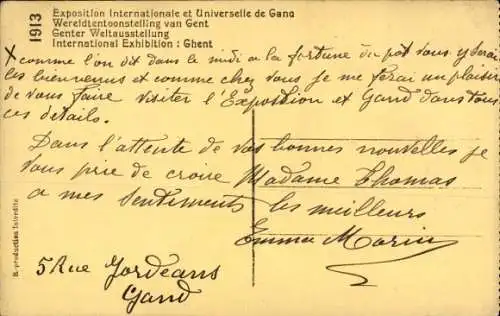 1913
Exposition Internationale et Universelle de Gand
Wereldtentoonstelling van Gent
Genter Weltausstellung
International Exhibition : Ghent
x comme l'on dit dans le midi a la fortune du pot vous y serai
les bienvenus et comme chez vous je me ferai un plaisir
de vous faire visiter l'Exposition et Gand dans tous
ces details.
Dans l'attente de vos bonnes nouvelles je
vous prie de croire Madame Thomas
a mes sentiments les meilleurs
Emma
5 Rue Jordeans
Gand
R-production Interdite